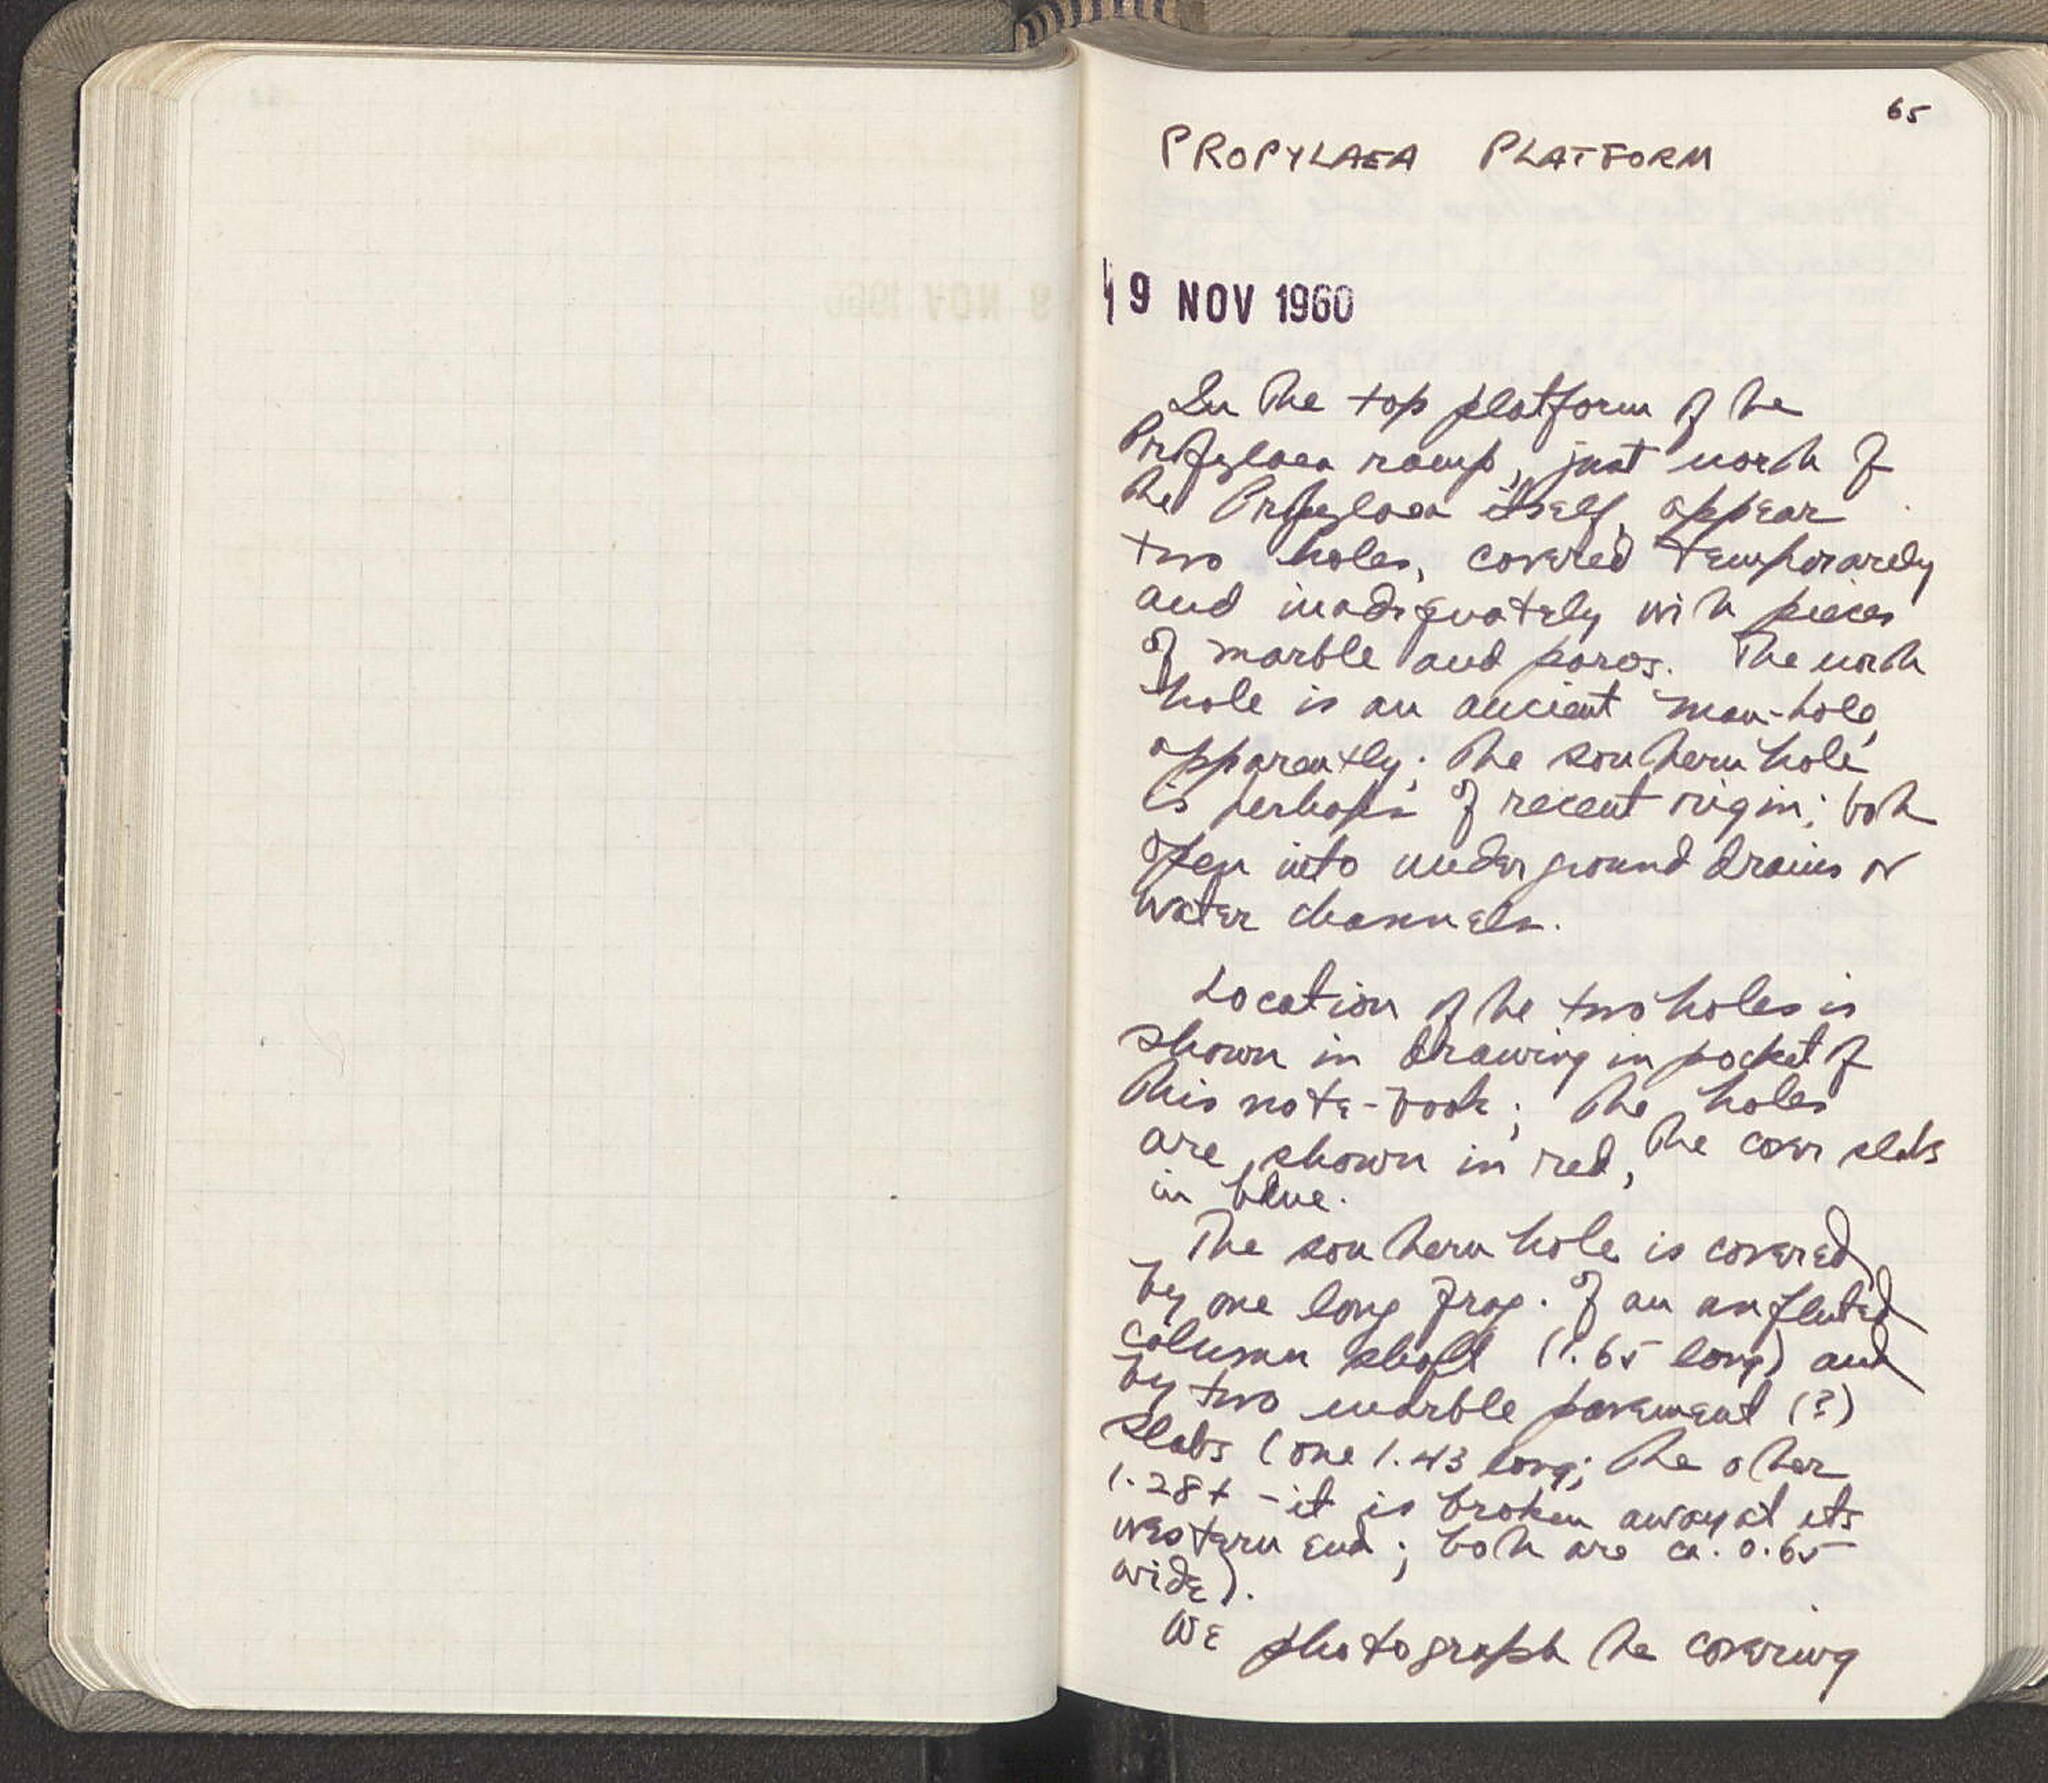 65
PROPYLAEA PLATFORM
9 NOV 1960
In the top platform of the
Propylaea ramp, just north of
the Propylaea itself, appear
two holes, covered temporarily
and inadequately with pieces
of marble and poros. The north
hole is an ancient man-hole,
apparently; the southern hole
is perhaps of recent origin; both
open into underground drains or
water channels.
Location of the two holes is
shown in drawing in pocket of
this note-book; the holes
are shown in red, the cover slabs
in blue.
The southern hole is covered
by one long frag. of an unfluted
column shaft (1.65 long) and
by two marble pavement (?)
slabs (one 1.43 long; the other
1.28+ - it is broken away at its
western end; both are ca. 0.65
wide).
We photograph the covering